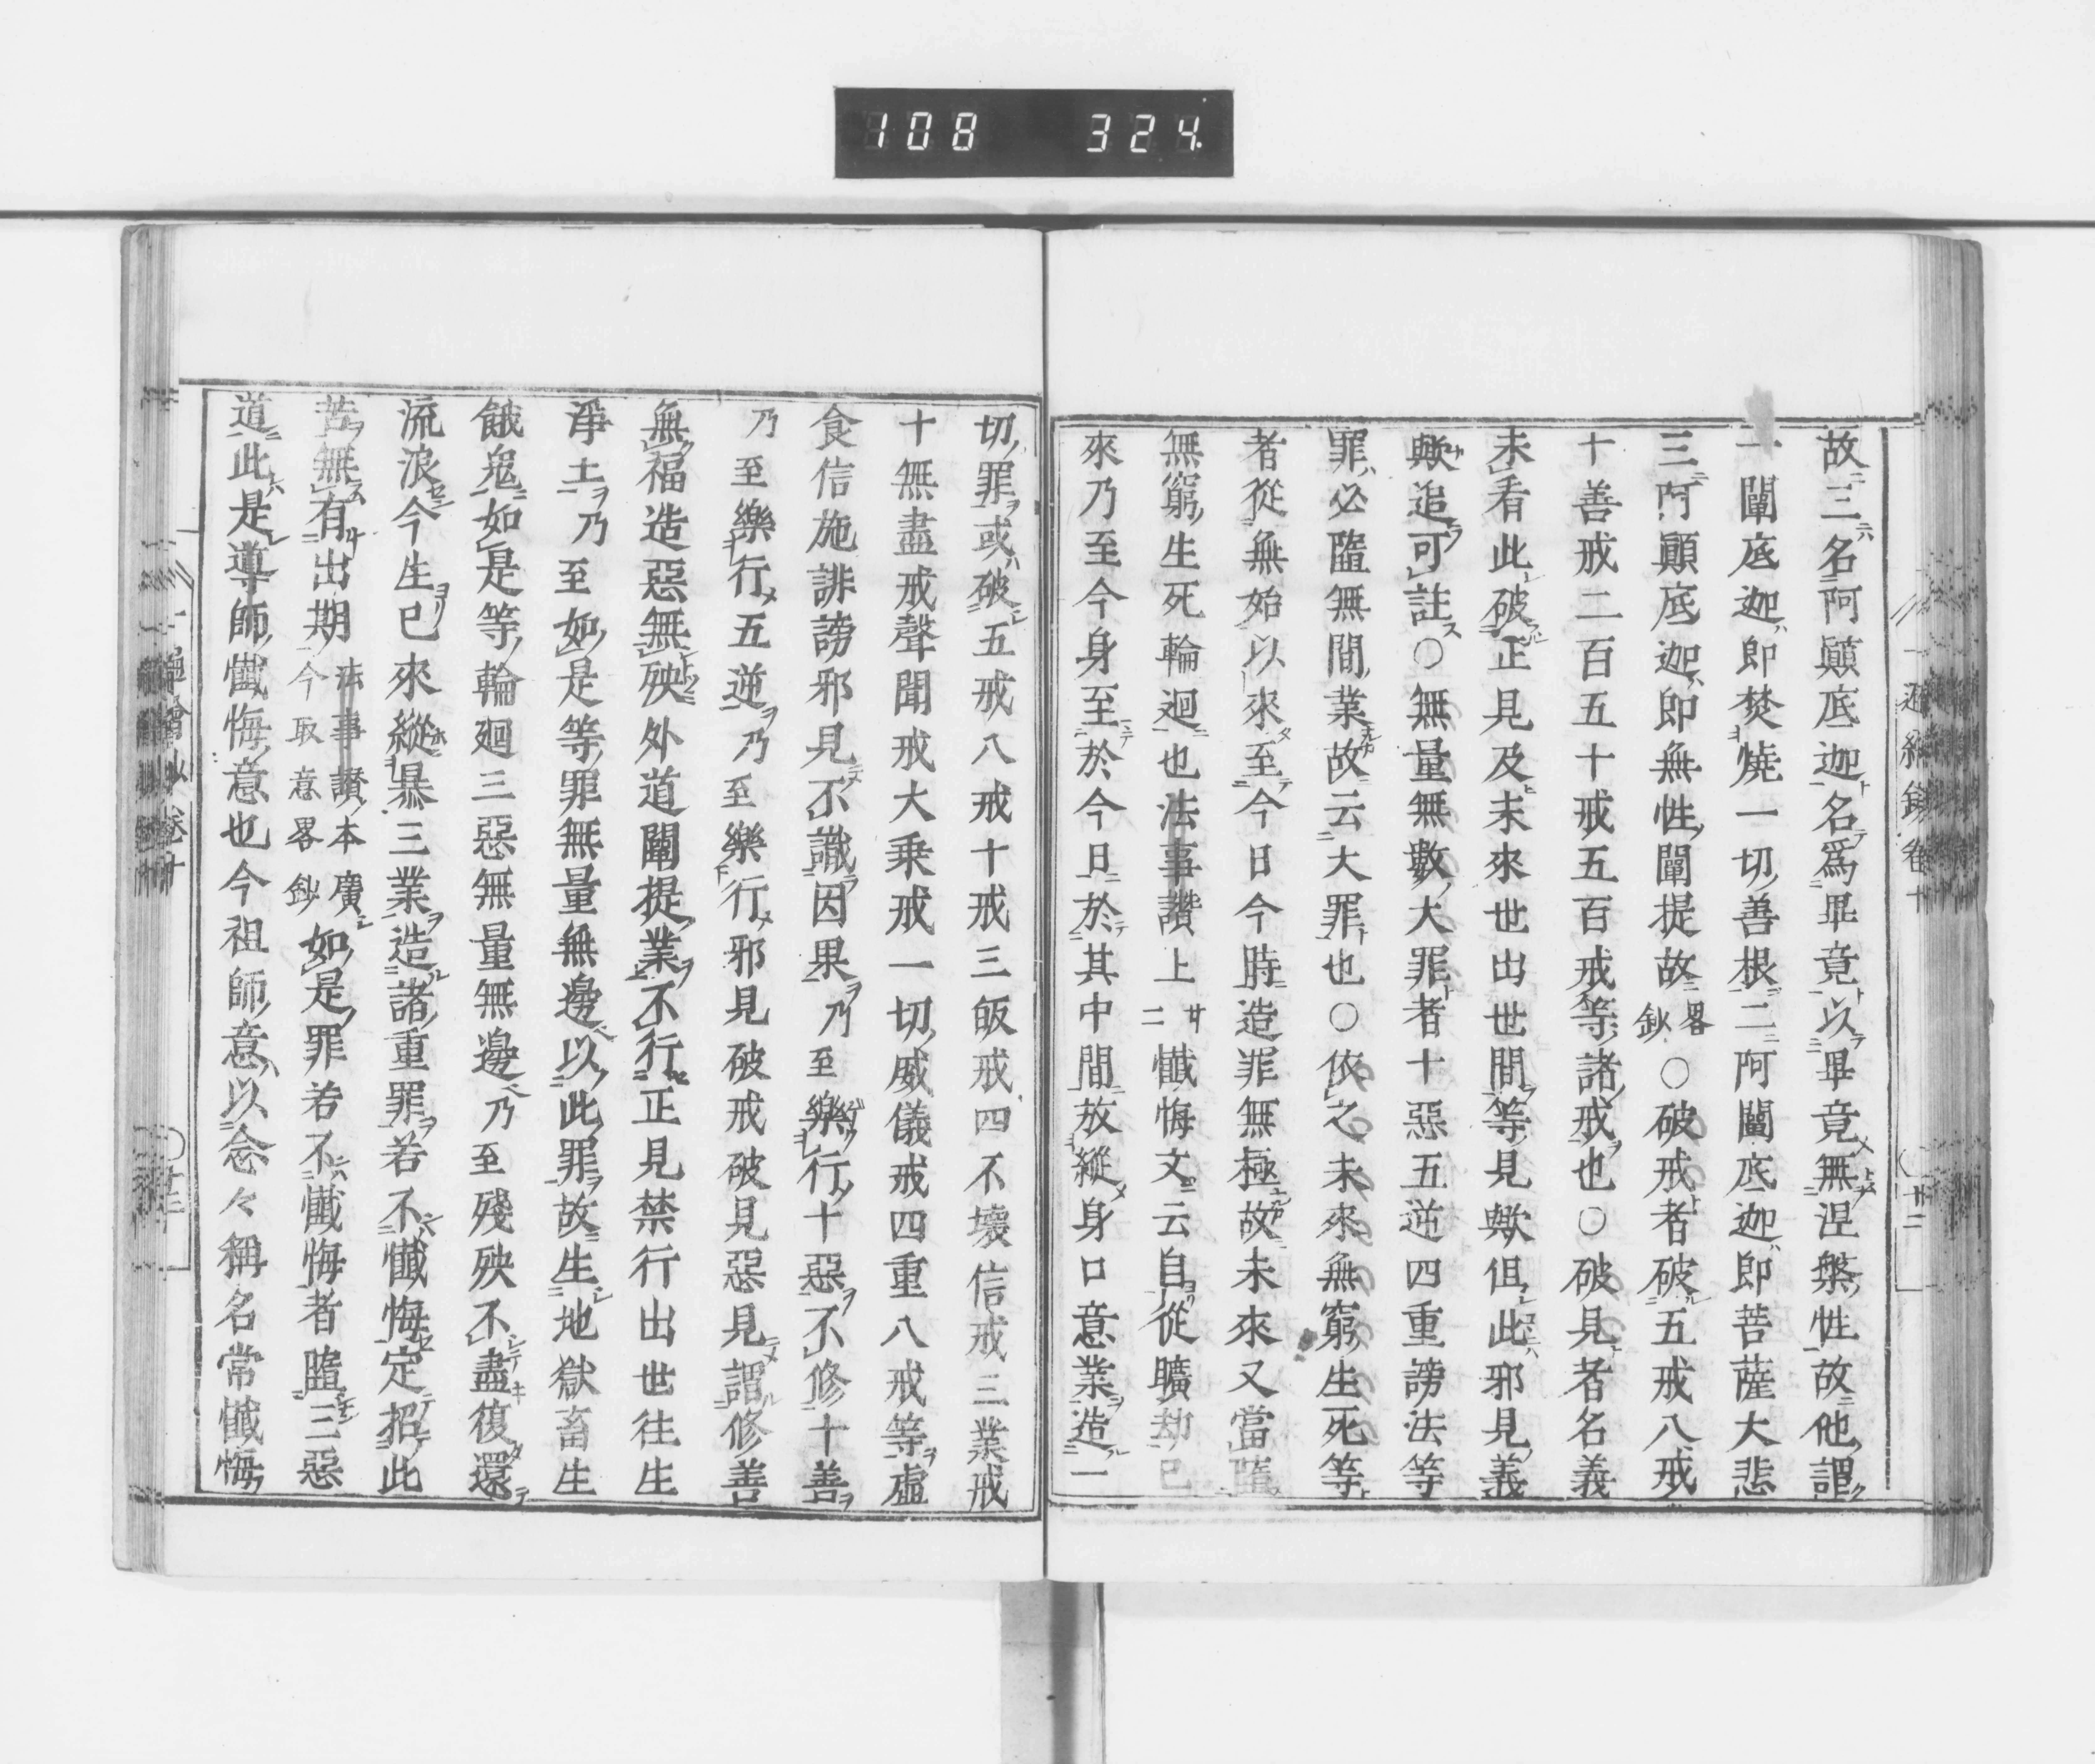 108 324
故三名阿顚底迦名爲畢竟以畢竟無涅槃性故他謂
一闡底迦即焚燒一切善根二阿闡底迦即菩薩大悲
三阿顚底迦即無性闡提故畧鈔○破戒者破五戒八戒
十善戒二百五十戒五百戒等諸戒也○破見者名義
未看此破正見及未來世出世間等見歟但此邪見義
歟追可註○無量無數大罪者十惡五逆四重謗法等
罪必墮無間業故云大罪也○依之未來無窮生死等
者從無始以來至今日今時造罪無極故未來又當墮
無窮生死輪廻也法事讃上廿二懺悔文云自從曠劫已
來乃至今身至於今日於其中間放縱身口意業造一
切罪或破五戒八戒十戒三皈戒四不壞信戒三業戒
十無盡戒聲聞戒大乗戒一切威儀戒四重八戒等虛
食信施誹謗邪見不識因果乃至樂行十惡不修十善
乃至樂行五逆乃至樂行邪見破戒破見惡見謂修善
無福造惡無殃外道闡提業不行正見禁行出世往生
淨土乃至如是等罪無量無邊以此罪故生地獄畜生
餓鬼如是等輪廻三惡無量無邊乃至殘殃不盡復還
流浪今生已來縱暴三業造諸重罪若不懺悔定招此
苦無有出期法事讃本廣今取意畧鈔如是罪若不懺悔者墮三惡
道此是導師懺悔意也今祖師意以念々稱名常懺悔
卷十
廿二